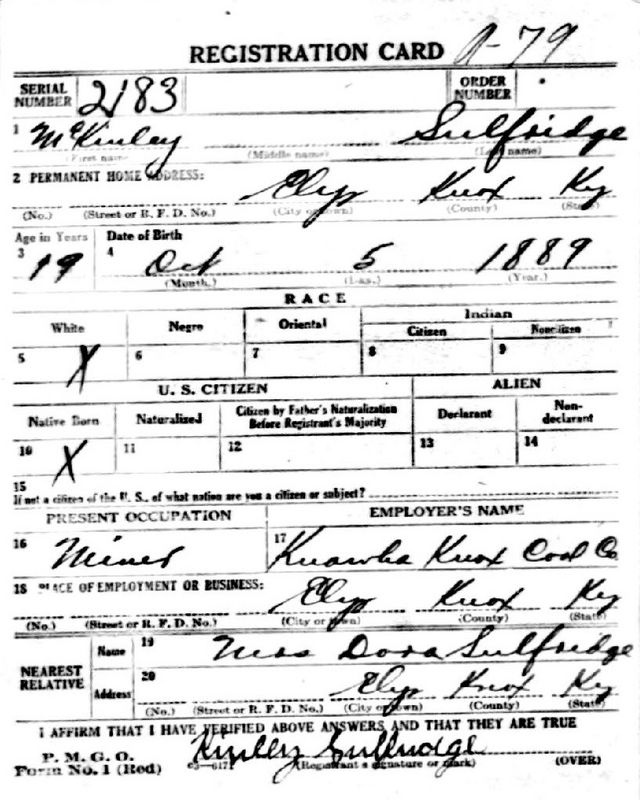 REGISTRATION CARD A-79
SERIAL NUMBER 2183 ORDER NUMBER
1 McKinley Sulfridge
(First name) (Middle name) (Last name)
2 PERMANENT HOME ADDRESS:
Elys Knox Ky
(No.) (Street or R. F. D. No.) (City or town) (County) (State)
Age in Years Date of Birth
3 19 4 Oct 5 1889
(Month.) (Day.) (Year.)
RACE
White Negro Oriental Indian
Citizen Noncitizen
5 X 6 7 8 9
U. S. CITIZEN ALIEN
Native Born Naturalized Citizen by Father's Naturalization Before Registrant's Majority Declarant Non-declarant
10 X 11 12 13 14
15
If not a citizen of the U. S., of what nation are you a citizen or subject?
PRESENT OCCUPATION EMPLOYER'S NAME
16 Miner 17 Knox Coal Co
18 PLACE OF EMPLOYMENT OR BUSINESS:
Elys Knox Ky
(No.) (Street or R. F. D. No.) (City or town) (County) (State)
NEAREST RELATIVE Name 19 Mrs Dora Sulfridge
Address 20 Elys Knox Ky
(No.) (Street or R. F. D. No.) (City or town) (County) (State)
I AFFIRM THAT I HAVE VERIFIED ABOVE ANSWERS AND THAT THEY ARE TRUE
P. M. G. O.
Form No. 1 (Red) (Registrant's signature or mark) (OVER)